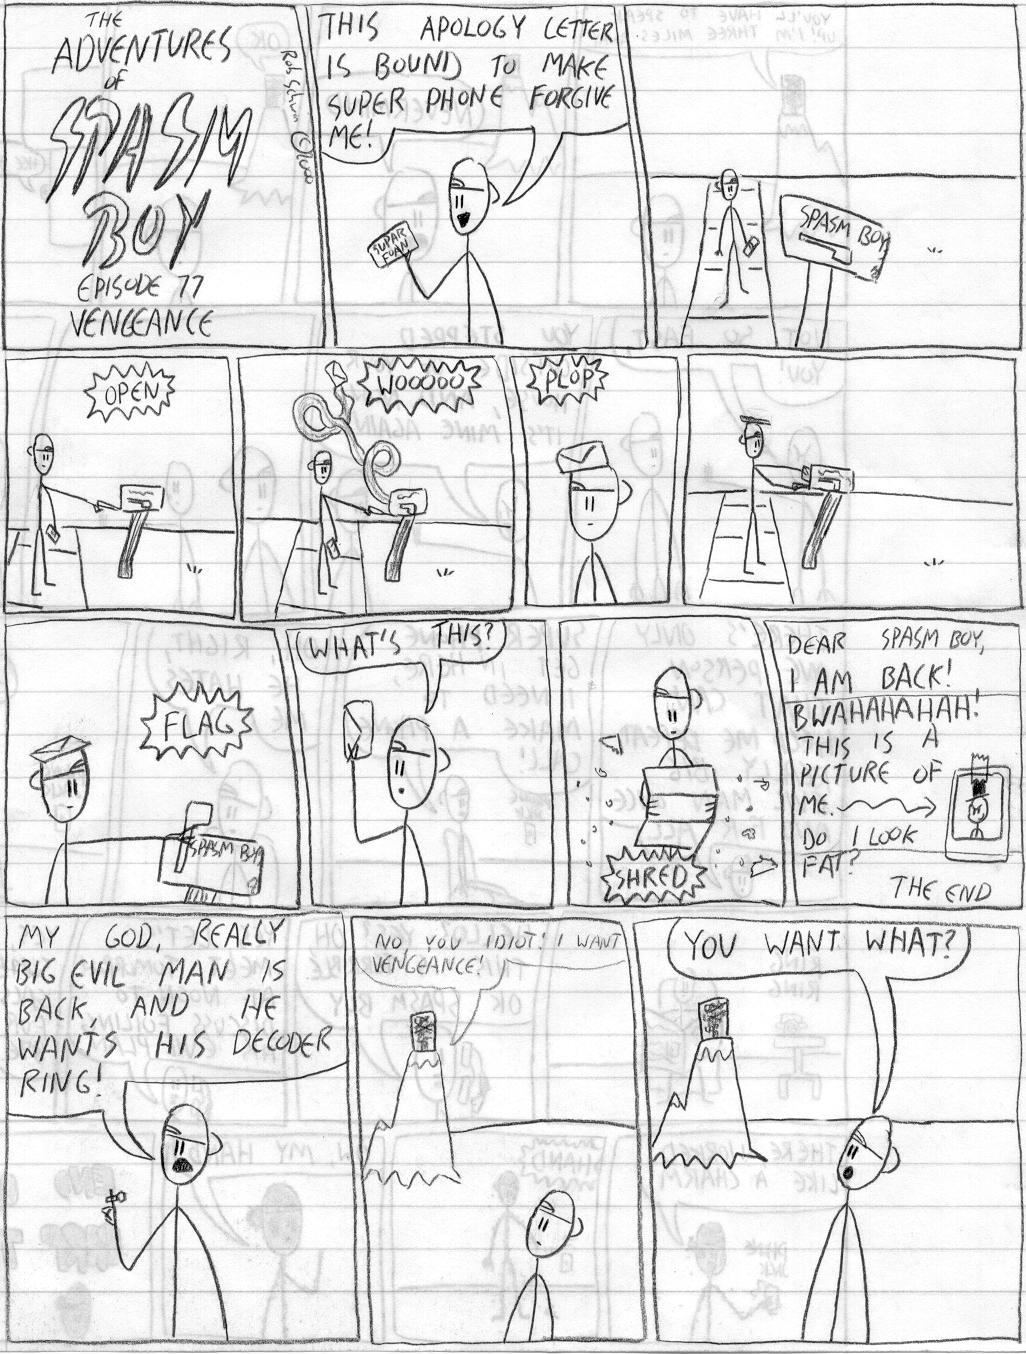 THE
ADVENTURES
of
SPASM
BOY
EPISODE 77
VENGEANCE
THIS APOLOGY LETTER
IS BOUND TO MAKE
SUPER PHONE FORGIVE
ME!
SUPAR
FOAN
SPASM BOY
OPEN
WOOOOO
PLOP
FLAG
SPASM BOY
WHAT'S THIS?
SHRED
DEAR SPASM BOY,
I AM BACK!
BWAHAHAHAH!
THIS IS A
PICTURE OF
ME.
DO I LOOK
FAT?
THE END
MY GOD, REALLY
BIG EVIL MAN IS
BACK, AND HE
WANTS HIS DECODER
RING!
NO, YOU IDIOT! I WANT
VENGEANCE!
YOU WANT WHAT?